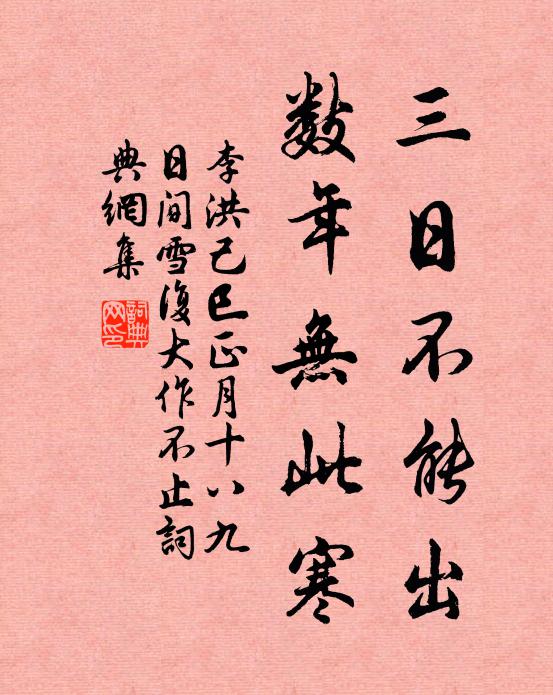 三日不能出
數年無此寒
李洪己巳正月十八九
日間雪復大作不止詞
典網集
詞典
网印